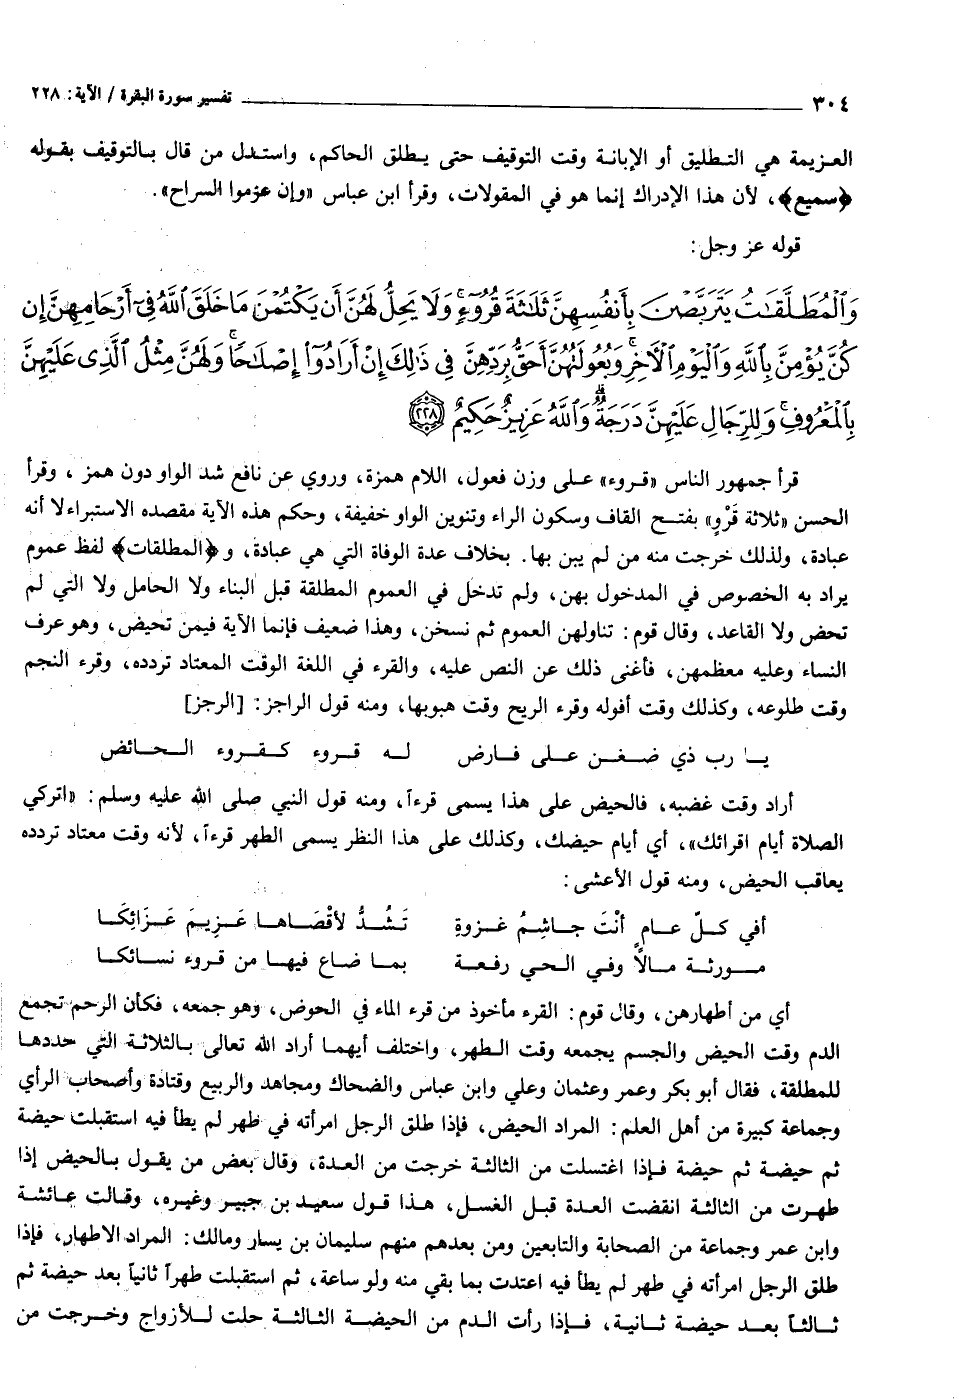 ٣٠٤ تفسير سورة البقرة / الآية: ٢٢٨
العزيمة هي التطليق أو الإبانة وقت التوقيف حتى يطلق الحاكم، واستدل من قال بالتوقيف بقوله
﴿سميع﴾، لأن هذا الإدراك إنما هو في المقولات، وقرأ ابن عباس «وإن عزموا السراح».
قوله عز وجل:
وَٱلْمُطَلَّقَٰتُ يَتَرَبَّصْنَ بِأَنفُسِهِنَّ ثَلَٰثَةَ قُرُوٓءٍ ۚ وَلَا يَحِلُّ لَهُنَّ أَن يَكْتُمْنَ مَا خَلَقَ ٱللَّهُ فِىٓ أَرْحَامِهِنَّ إِن
كُنَّ يُؤْمِنَّ بِٱللَّهِ وَٱلْيَوْمِ ٱلْآخِرِ ۚ وَبُعُولَتُهُنَّ أَحَقُّ بِرَدِّهِنَّ فِى ذَٰلِكَ إِنْ أَرَادُوٓا۟ إِصْلَٰحًا ۚ وَلَهُنَّ مِثْلُ ٱلَّذِى عَلَيْهِنَّ
بِٱلْمَعْرُوفِ ۚ وَلِلرِّجَالِ عَلَيْهِنَّ دَرَجَةٌ ۗ وَٱللَّهُ عَزِيزٌ حَكِيمٌ ٢٢٨
قرأ جمهور الناس «قروء» على وزن فعول، اللام همزة، وروي عن نافع شد الواو دون همز، وقرأ
الحسن «ثلاثة قَرْوٍ» بفتح القاف وسكون الراء وتنوين الواو خفيفة، وحكم هذه الآية مقصده الاستبراء لا أنه
عبادة، ولذلك خرجت منه من لم يبن بها. بخلاف عدة الوفاة التي هي عبادة، و﴿المطلقات﴾ لفظ عموم
يراد به الخصوص في المدخول بهن، ولم تدخل في العموم المطلقة قبل البناء ولا الحامل ولا التي لم
تحض ولا القاعد، وقال قوم: تناولهن العموم ثم نسخن، وهذا ضعيف فإنما الآية فيمن تحيض، وهو عرف
النساء وعليه معظمهن، فأغنى ذلك عن النص عليه، والقرء في اللغة الوقت المعتاد تردده، وقرء النجم
وقت طلوعه، وكذلك وقت أفوله وقرء الريح وقت هبوبها، ومنه قول الراجز: [الرجز]
يا رب ذي ضغن على فارض له قروء كقروء الحائض
أراد وقت غضبه، فالحيض على هذا يسمى قرءآ، ومنه قول النبي صلى الله عليه وسلم: «اتركي
الصلاة أيام اقرائك»، أي أيام حيضك، وكذلك على هذا النظر يسمى الطهر قرءآ، لأنه وقت معتاد تردده
يعاقب الحيض، ومنه قول الأعشى:
أفي كلّ عامٍ أنْتَ جاشِمُ غزوةِ تَشُدُّ لأقْصَاها عَزِيمَ عَزَائِكَا
مورثة مالاً وفي الحي رفعة بما ضاع فيها من قروء نسائكا
أي من أطهارهن، وقال قوم: القرء مأخوذ من قرء الماء في الحوض، وهو جمعه، فكأن الرحم تجمع
الدم وقت الحيض والجسم يجمعه وقت الطهر، واختلف أيهما أراد الله تعالى بالثلاثة التي حددها
للمطلقة، فقال أبو بكر وعمر وعثمان وعلي وابن عباس والضحاك ومجاهد والربيع وقتادة وأصحاب الرأي
وجماعة كبيرة من أهل العلم: المراد الحيض، فإذا طلق الرجل امرأته في طهر لم يطأ فيه استقبلت حيضة
ثم حيضة ثم حيضة فإذا اغتسلت من الثالثة خرجت من العدة، وقال بعض من يقول بالحيض إذا
طهرت من الثالثة انقضت العدة قبل الغسل، هذا قول سعيد بن جبير وغيره، وقالت عائشة
وابن عمر وجماعة من الصحابة والتابعين ومن بعدهم منهم سليمان بن يسار ومالك: المراد الاطهار، فإذا
طلق الرجل امرأته في طهر لم يطأ فيه اعتدت بما بقي منه ولو ساعة، ثم استقبلت طهراً ثانياً بعد حيضة ثم
ثالثاً بعد حيضة ثانية، فإذا رأت الدم من الحيضة الثالثة حلت للأزواج وخرجت من